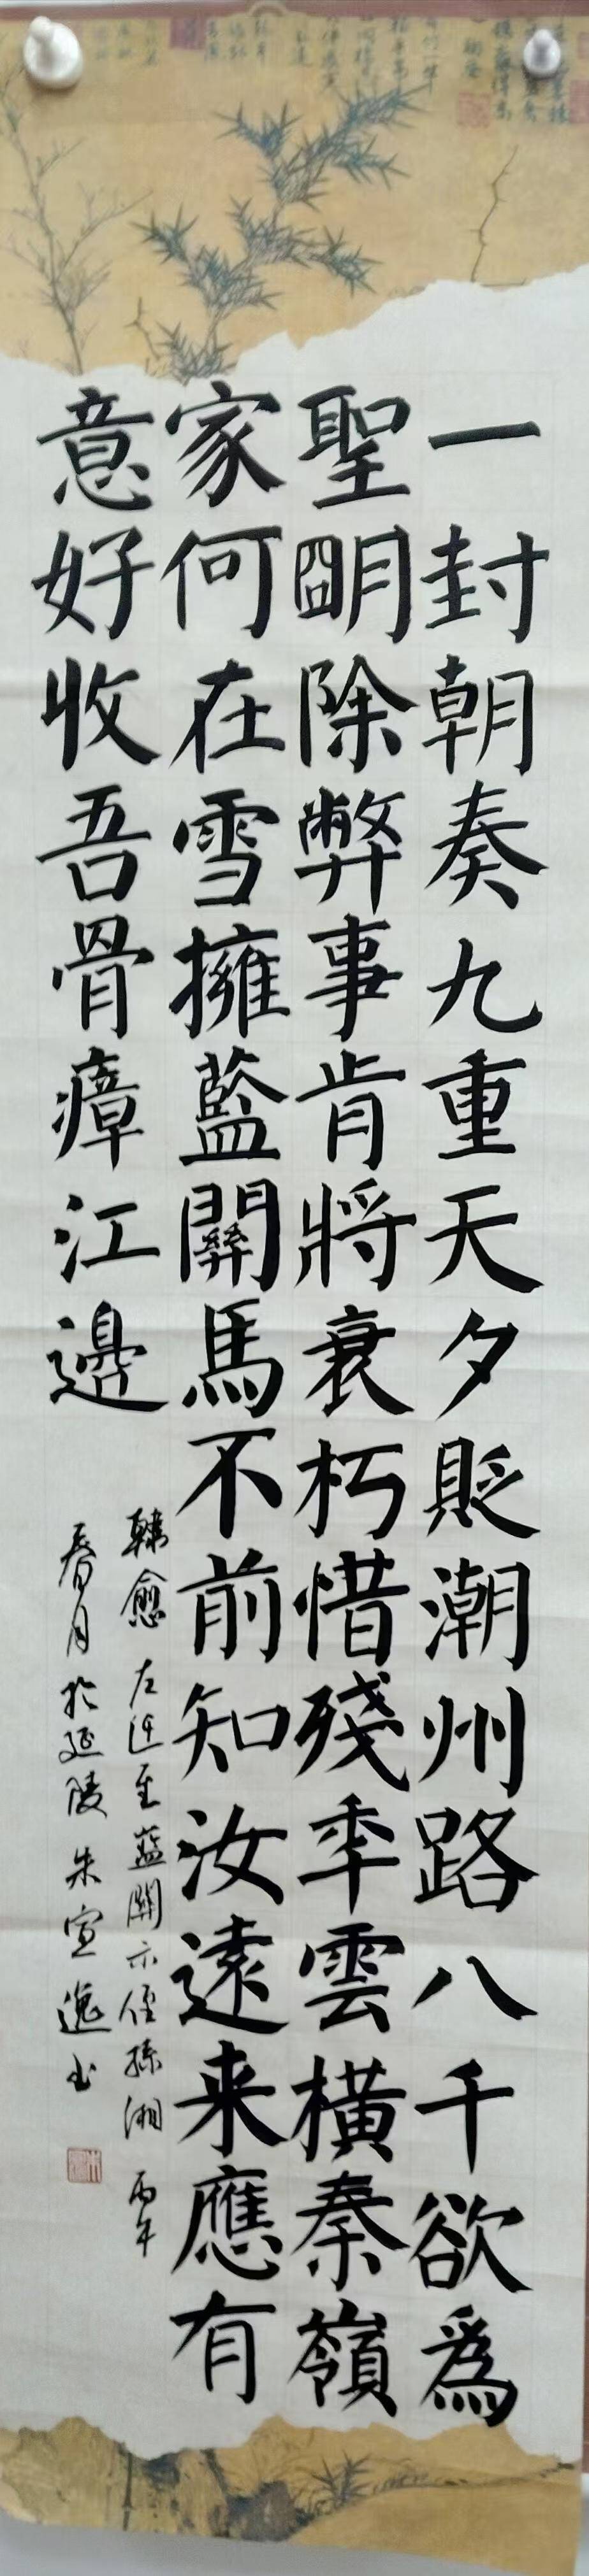 一封朝奏九重天夕貶潮州路八千欲爲
聖明除弊事肯將衰朽惜殘年雲橫秦嶺
家何在雪擁藍關馬不前知汝遠来應有
意好收吾骨瘴江邊
韓愈左迁至藍關示侄孫湘 丙午
春月於延陵朱宣逸书